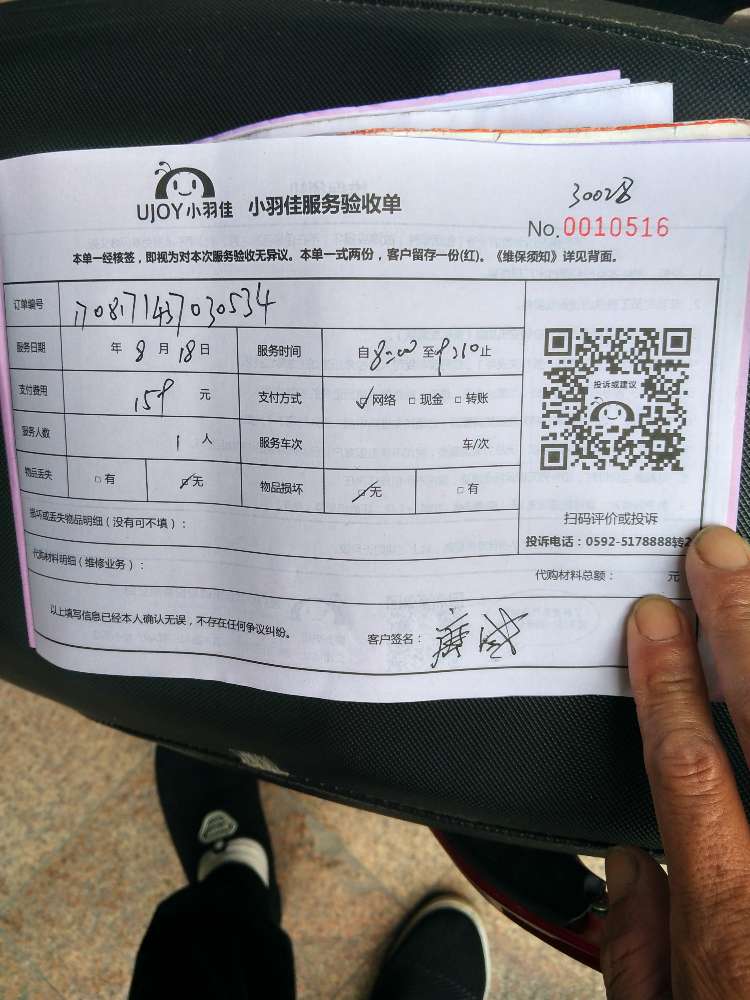 UJOY小羽佳 小羽佳服务验收单
30028
No.0010516
本单一经核签，即视为对本次服务验收无异议。本单一式两份，客户留存一份(红)。《维保须知》详见背面。
订单编号 1708171437030534
服务日期 年 8 月 18 日 服务时间 自 8:00 至 9:10 止
支付费用 159 元 支付方式 ☑网络 □现金 □转账
服务人数 1 人 服务车次 车/次
物品丢失 □有 ☑无 物品损坏 ☑无 □有
投诉或建议
扫码评价或投诉
损坏或丢失物品明细（没有可不填）：
投诉电话：0592-5178888转2
代购材料明细（维修业务）：
代购材料总额： 元
以上填写信息已经本人确认无误，不存在任何争议纠纷。
客户签名：